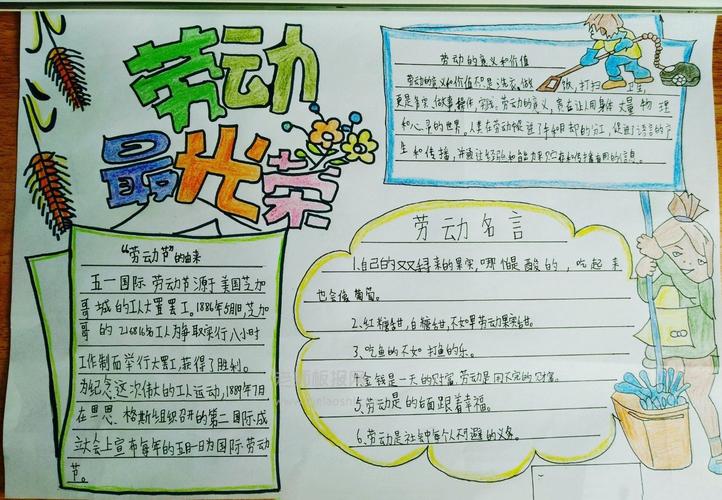 劳动
最光荣
"劳动节"的由来
五一国际劳动节源于美国芝加
哥城的工人大罢工。1886年5月1日,芝加
哥的216816名工人为争取实行八小时
工作制而举行大罢工,获得了胜利。
为纪念这次伟大的工人运动,1889年7月
在恩思、格斯组织召开的第二国际成
立大会上宣布每年的五月一日为国际劳动
节。
劳动的意义和价值
劳动的意义和价值不只是洗衣、做饭,打扫卫生,
和心灵的世界。人类在劳动中促进了
生和传播,并通过
劳动名言
1.自己的双手得来的果实,哪怕是酸的,吃起来
也会像葡萄。
2、红糖甜,白糖甜,不如果劳动果实甜。
3、吃鱼的不如打鱼的乐。
4.金钱是一天的财富,劳动是用不完的财富。
5、劳动是的后面跟着幸福。
6、劳动是社会中每个人不可避的义务。
老师板报网